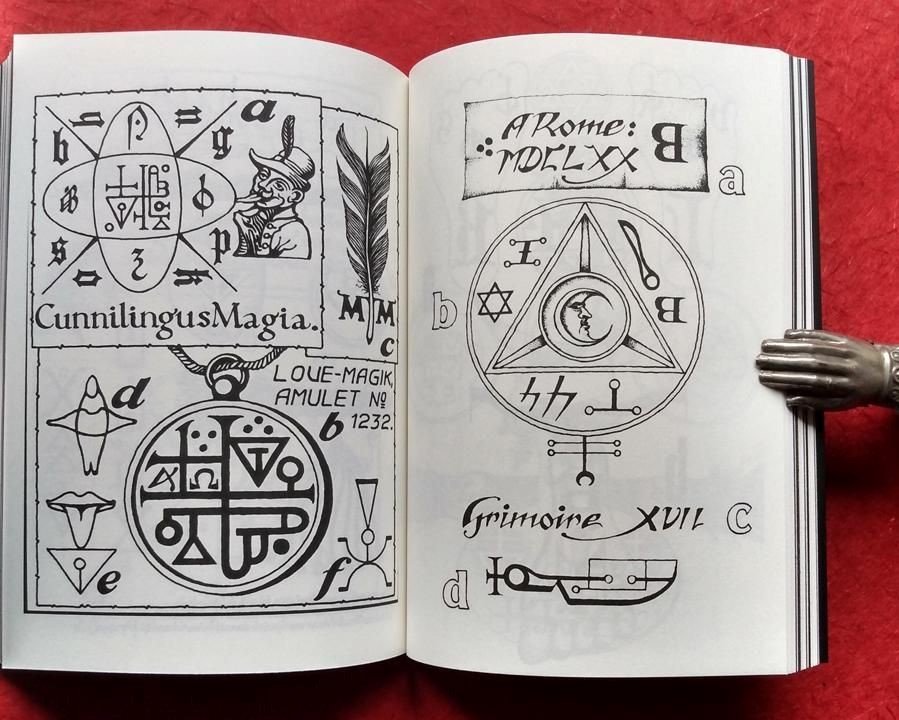 a
b
g
s
p
CunnilingusMagia.
M M
c
LOVE-MAGIK,
AMULET №
1232.
b
d
e
f
A Rome:
MDCLXX
B
a
b
B
Grimoire XVII
c
d